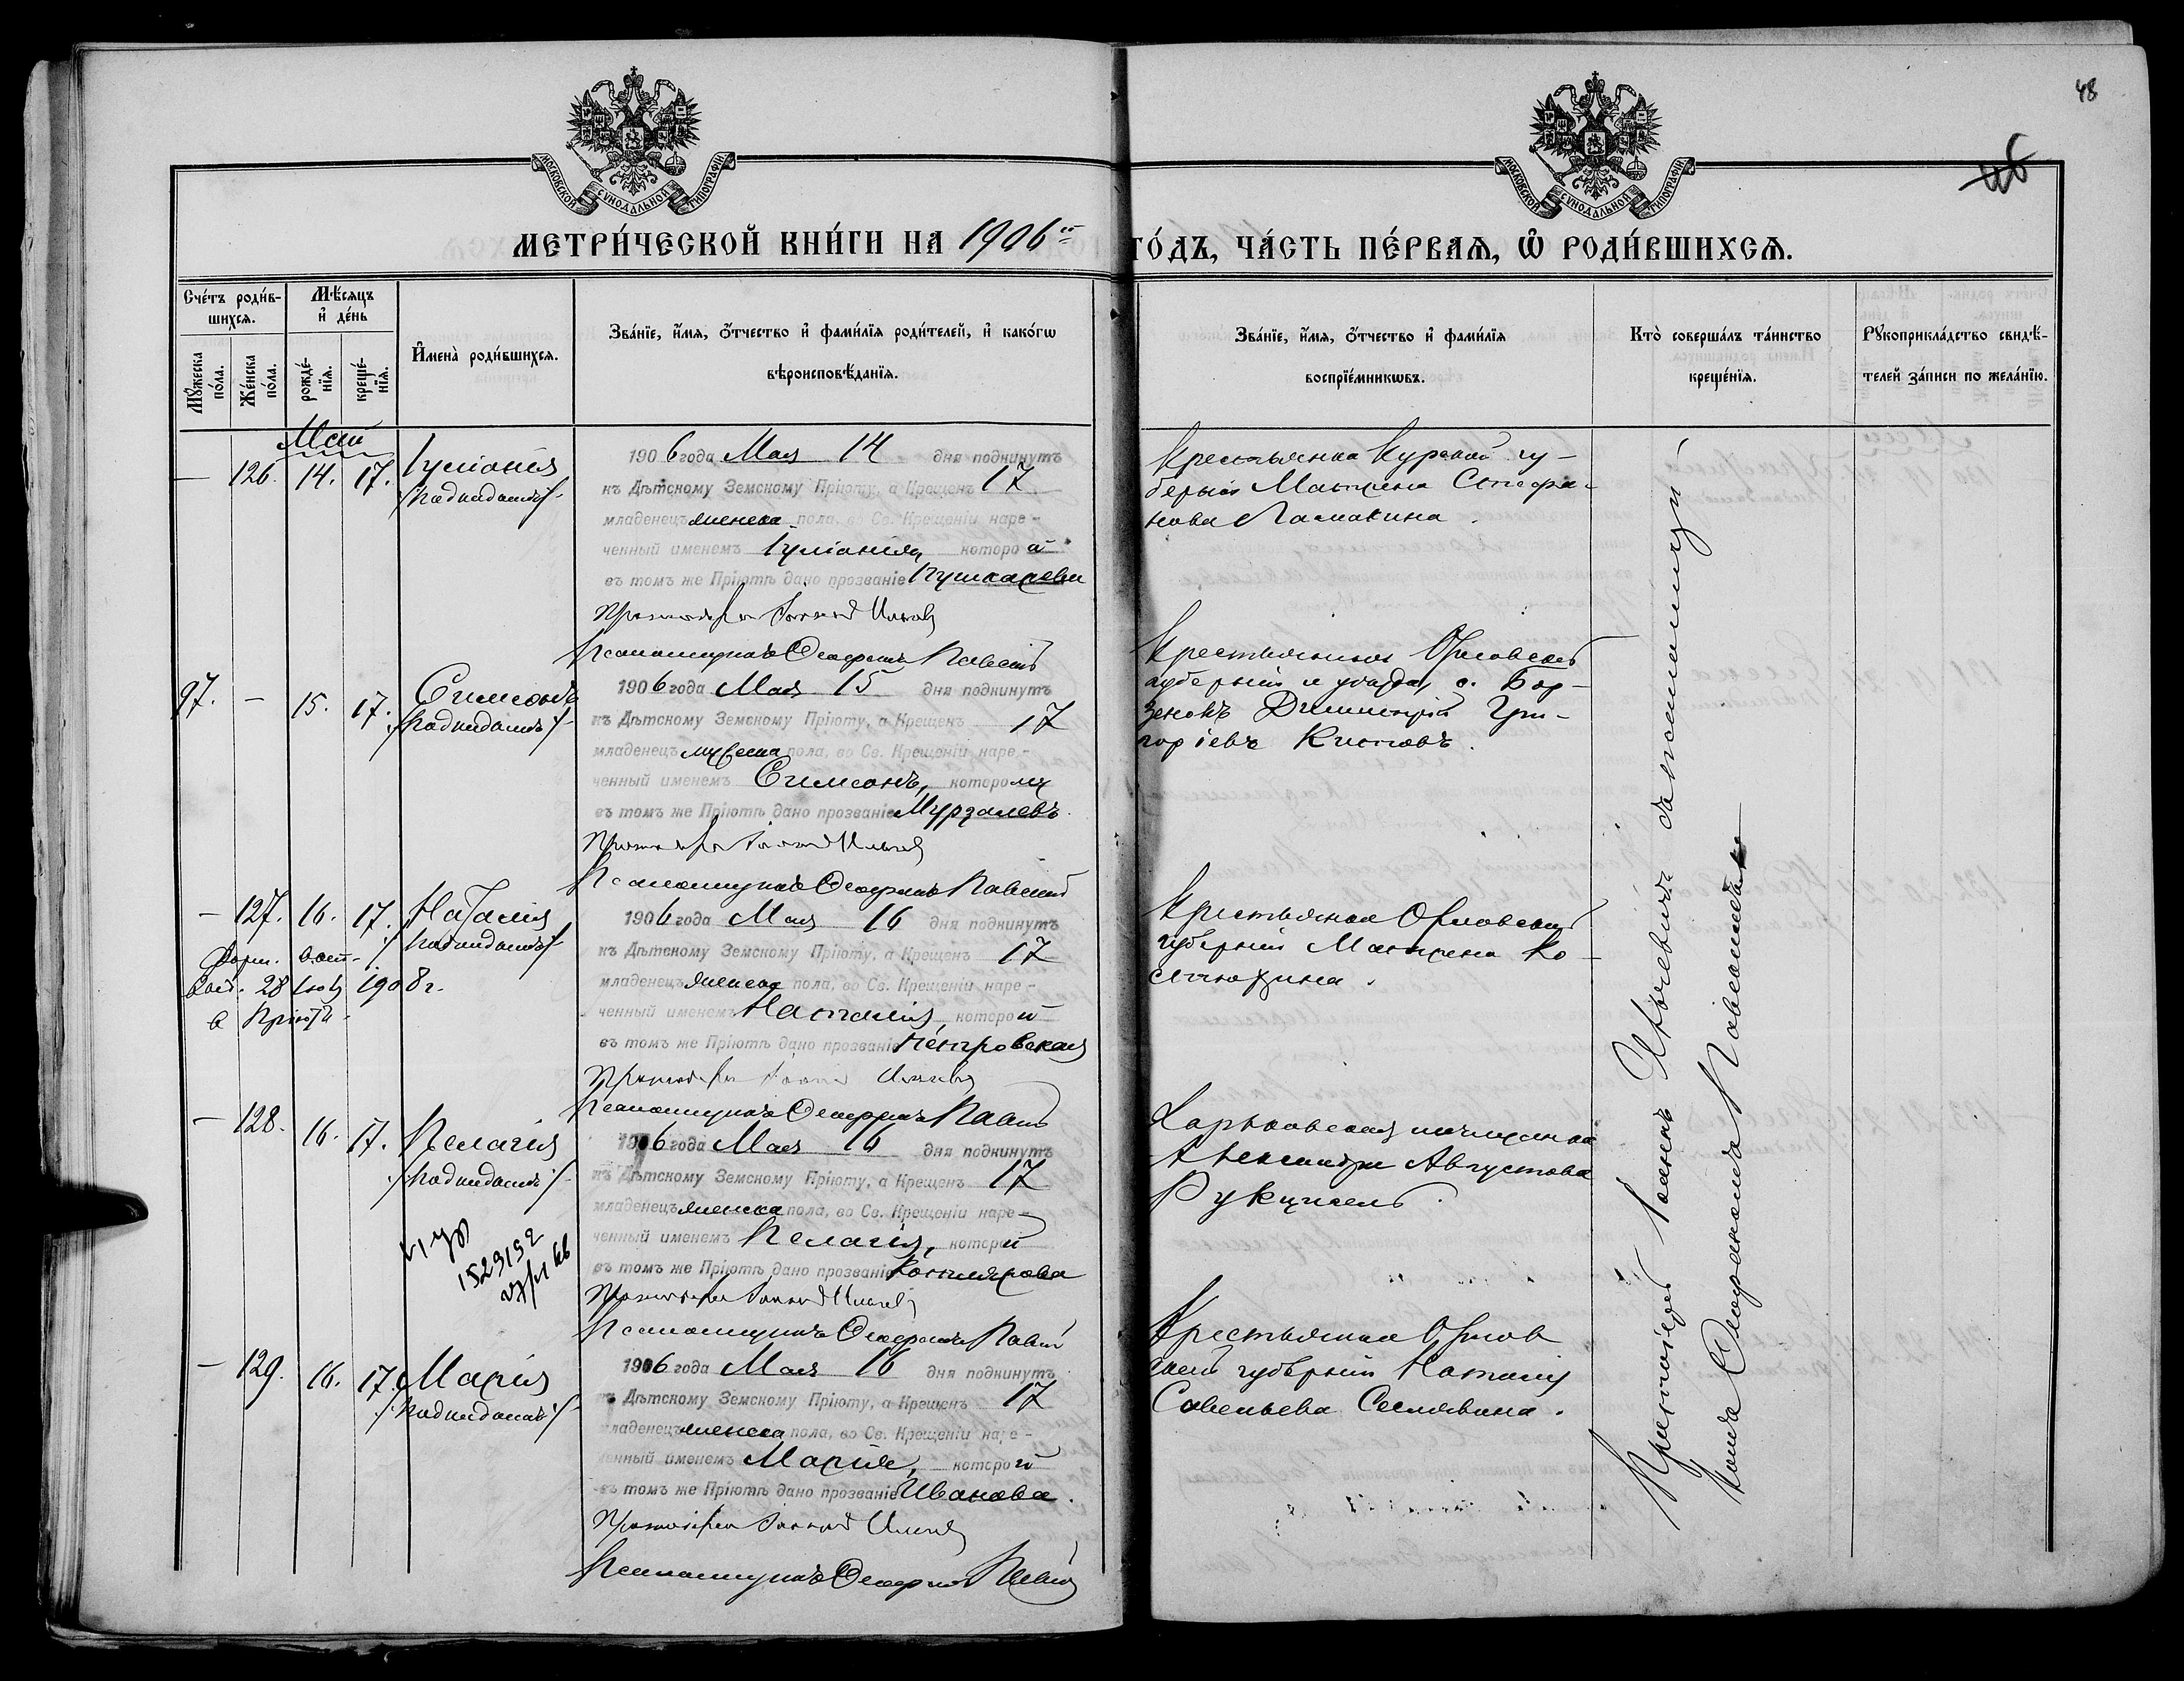 48
46
МОСКОВСКОЙ СѴНОДАЛЬНОЙ ТИПОГРАФІИ
МОСКОВСКОЙ СѴНОДАЛЬНОЙ ТИПОГРАФІИ
МЕТРИ́ЧЕСКОЙ КНИ́ГИ НА 1906 ГО́ДЪ, ЧА́СТЬ ПЕ́РВАѦ, Ѡ РОДИ́ВШИХСѦ.
Счéтъ роди́в-
шихсѧ.
Мꙋ́жеска по́ла.
Же́нска по́ла.
Мѣ́сѧцъ и҆ де́нь
рожде́-нїѧ.
креще́-нїѧ.
И҆мена̀ роди́вшихсѧ.
Зва́нїе, и҆́мѧ, ѻ҆́тчество и҆ фами́лїѧ роди́телей, и҆ како́гѡ
вѣроисповѣ́данїѧ.
Зва́нїе, и҆́мѧ, ѻ҆́тчество и҆ фами́лїѧ
воспрїе́мникѡвъ.
Кто̀ соверша́лъ та́инство
креще́нїѧ.
Рꙋкоприкла́дство свидѣ́-
телей за́писи по жела́нїю.
Май
— 126. 14. 17. Іуліанія
/подкидышъ/
1906 года Мая 14 дня подкинутъ
къ Дѣтскому Земскому Пріюту, а Крещенъ 17
младенецъ женска пола, во Св. Крещеніи наре-
ченный именемъ Іуліанія, которой
въ томъ же Пріютѣ дано прозваніе Пушкарева
Протоіерей Іоаннъ
Псаломщикъ Ѳеофанъ
Крестьянка Курской гу-
берніи Матрена Стефа-
нова Ламакина.
97. — 15. 17. Симеонъ
/подкидышъ/
1906 года Мая 15 дня подкинутъ
къ Дѣтскому Земскому Пріюту, а Крещенъ 17
младенецъ мужеска пола, во Св. Крещеніи наре-
ченный именемъ Симеонъ, которому
въ томъ же Пріютѣ дано прозваніе Мурзалевъ.
Протоіерей Іоаннъ
Псаломщикъ Ѳеофанъ
Крестьянинъ Орловской
губерніи и уѣзда, с. Бор-
зенокъ Димитрій Гри-
горіевъ Китовъ.
— 127. 16. 17. Наталія
/подкидышъ/
28 1908 г.
в Пріютъ
1906 года Мая 16 дня подкинутъ
къ Дѣтскому Земскому Пріюту, а Крещенъ 17
младенецъ женска пола, во Св. Крещеніи наре-
ченный именемъ Наталія, которой
въ томъ же Пріютѣ дано прозваніе Петровская
Протоіерей Іоаннъ
Псаломщикъ Ѳеофанъ
Крестьянка Орловской
губерніи Матрена Ко-
стюрина.
— 128. 16. 17. Пелагія
/подкидышъ/
1529152
1906 года Мая 16 дня подкинутъ
къ Дѣтскому Земскому Пріюту, а Крещенъ 17
младенецъ женска пола, во Св. Крещеніи наре-
ченный именемъ Пелагія, которой
въ томъ же Пріютѣ дано прозваніе Котлярова
Протоіерей Іоаннъ
Псаломщикъ Ѳеофанъ
Харьковская мѣщанка
Александра Августова
— 129. 16. 17. Марія
/подкидышъ/
1906 года Мая 16 дня подкинутъ
къ Дѣтскому Земскому Пріюту, а Крещенъ 17
младенецъ женска пола, во Св. Крещеніи наре-
ченный именемъ Марія, которой
въ томъ же Пріютѣ дано прозваніе Иванова.
Протоіерей Іоаннъ
Псаломщикъ Ѳеофанъ
Крестьянка Орлов
ской губерніи Наталія
Савельева
Протоіерей Іоаннъ